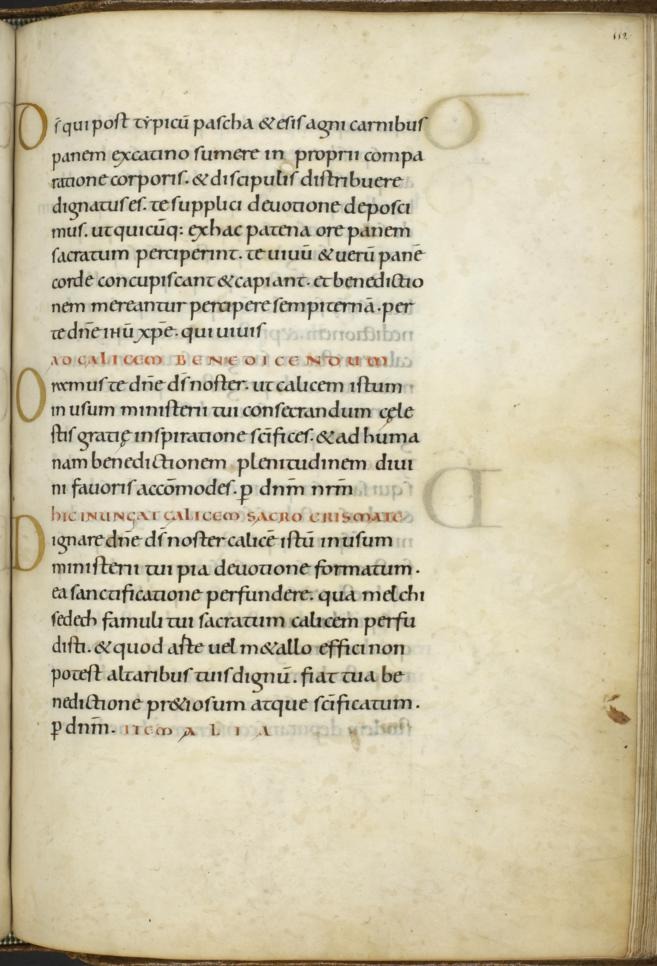 112
Ds̄ qui post tẏpicū pascha & esis agni carnibus
panem excatino sumere in proprii compa
ratione corporis. & discipulis distribuere
dignatus es. te supplici deuotione deposci
mus. ut quicūq: exhac patena ore panem
sacratum perciperint. te uiuū & uerū panē
corde concupiscant & capiant. et benedictio
nem mereantur percipere sempiternā. per
te dn̄e ihū xp̄e. qui uiuis
AD CALICEM BENEDICENDUM
Oremus te dn̄e ds̄ noster. ut calicem istum
in usum ministerii tui consecrandum cęle
stis gratię inspiratione sc̄ifices. & ad huma
nam benedictionem plenitudinem diui
ni fauoris accōmodes. p̄ dnm̄ nrm̄
hIC INUNGAT CALICEM SACRO CRISMATE
Dignare dn̄e ds̄ noster calicē istū in usum
ministerii tui pia deuotione formatum.
ea sanctificatione perfundere. qua melchi
sedech famuli tui sacratum calicem perfu
disti. & quod arte uel m&allo effici non
potest altaribus tuis dignū. fiat tua be
nedictione pr&iosum atque sc̄ificatum.
p̄ dnm̄. ITEM ALIA